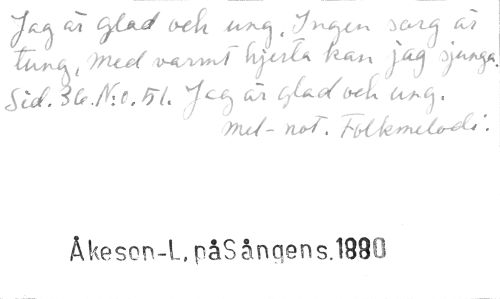 Jag är glad och ung, Ingen sorg är
tung, Med varmt hjerta kan jag sjunga.
Sid. 36. N:o. 51. Jag är glad och ung.
mel-not. Folkmelodi.
Åkeson-L. påSångens.1880